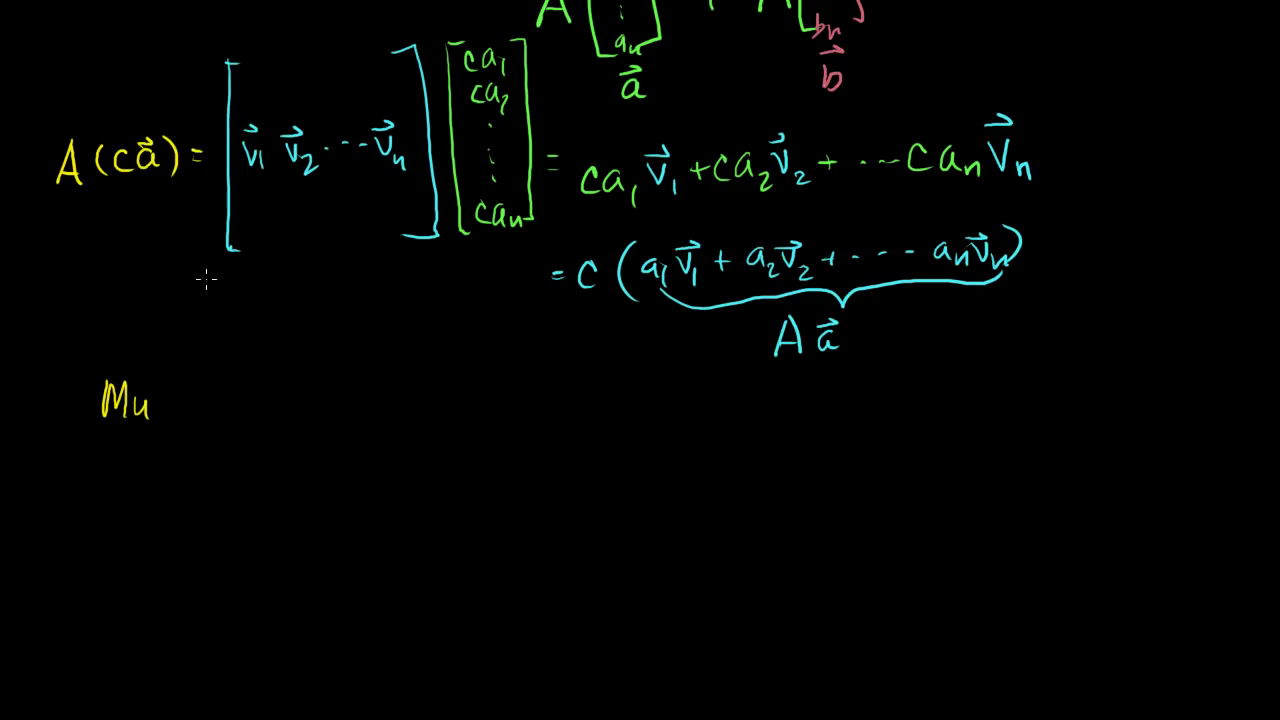 A [ ⋮ aₙ ] + A [ bₙ ]
a⃗ b⃗
A(ca⃗) = [ v⃗₁ v⃗₂ ··· v⃗ₙ ] [ ca₁ ca₂ ⋮ caₙ ] = ca₁v⃗₁ + ca₂v⃗₂ + ··· caₙv⃗ₙ
= c(a₁v⃗₁ + a₂v⃗₂ + ···· aₙv⃗ₙ)
Aa⃗
Mu